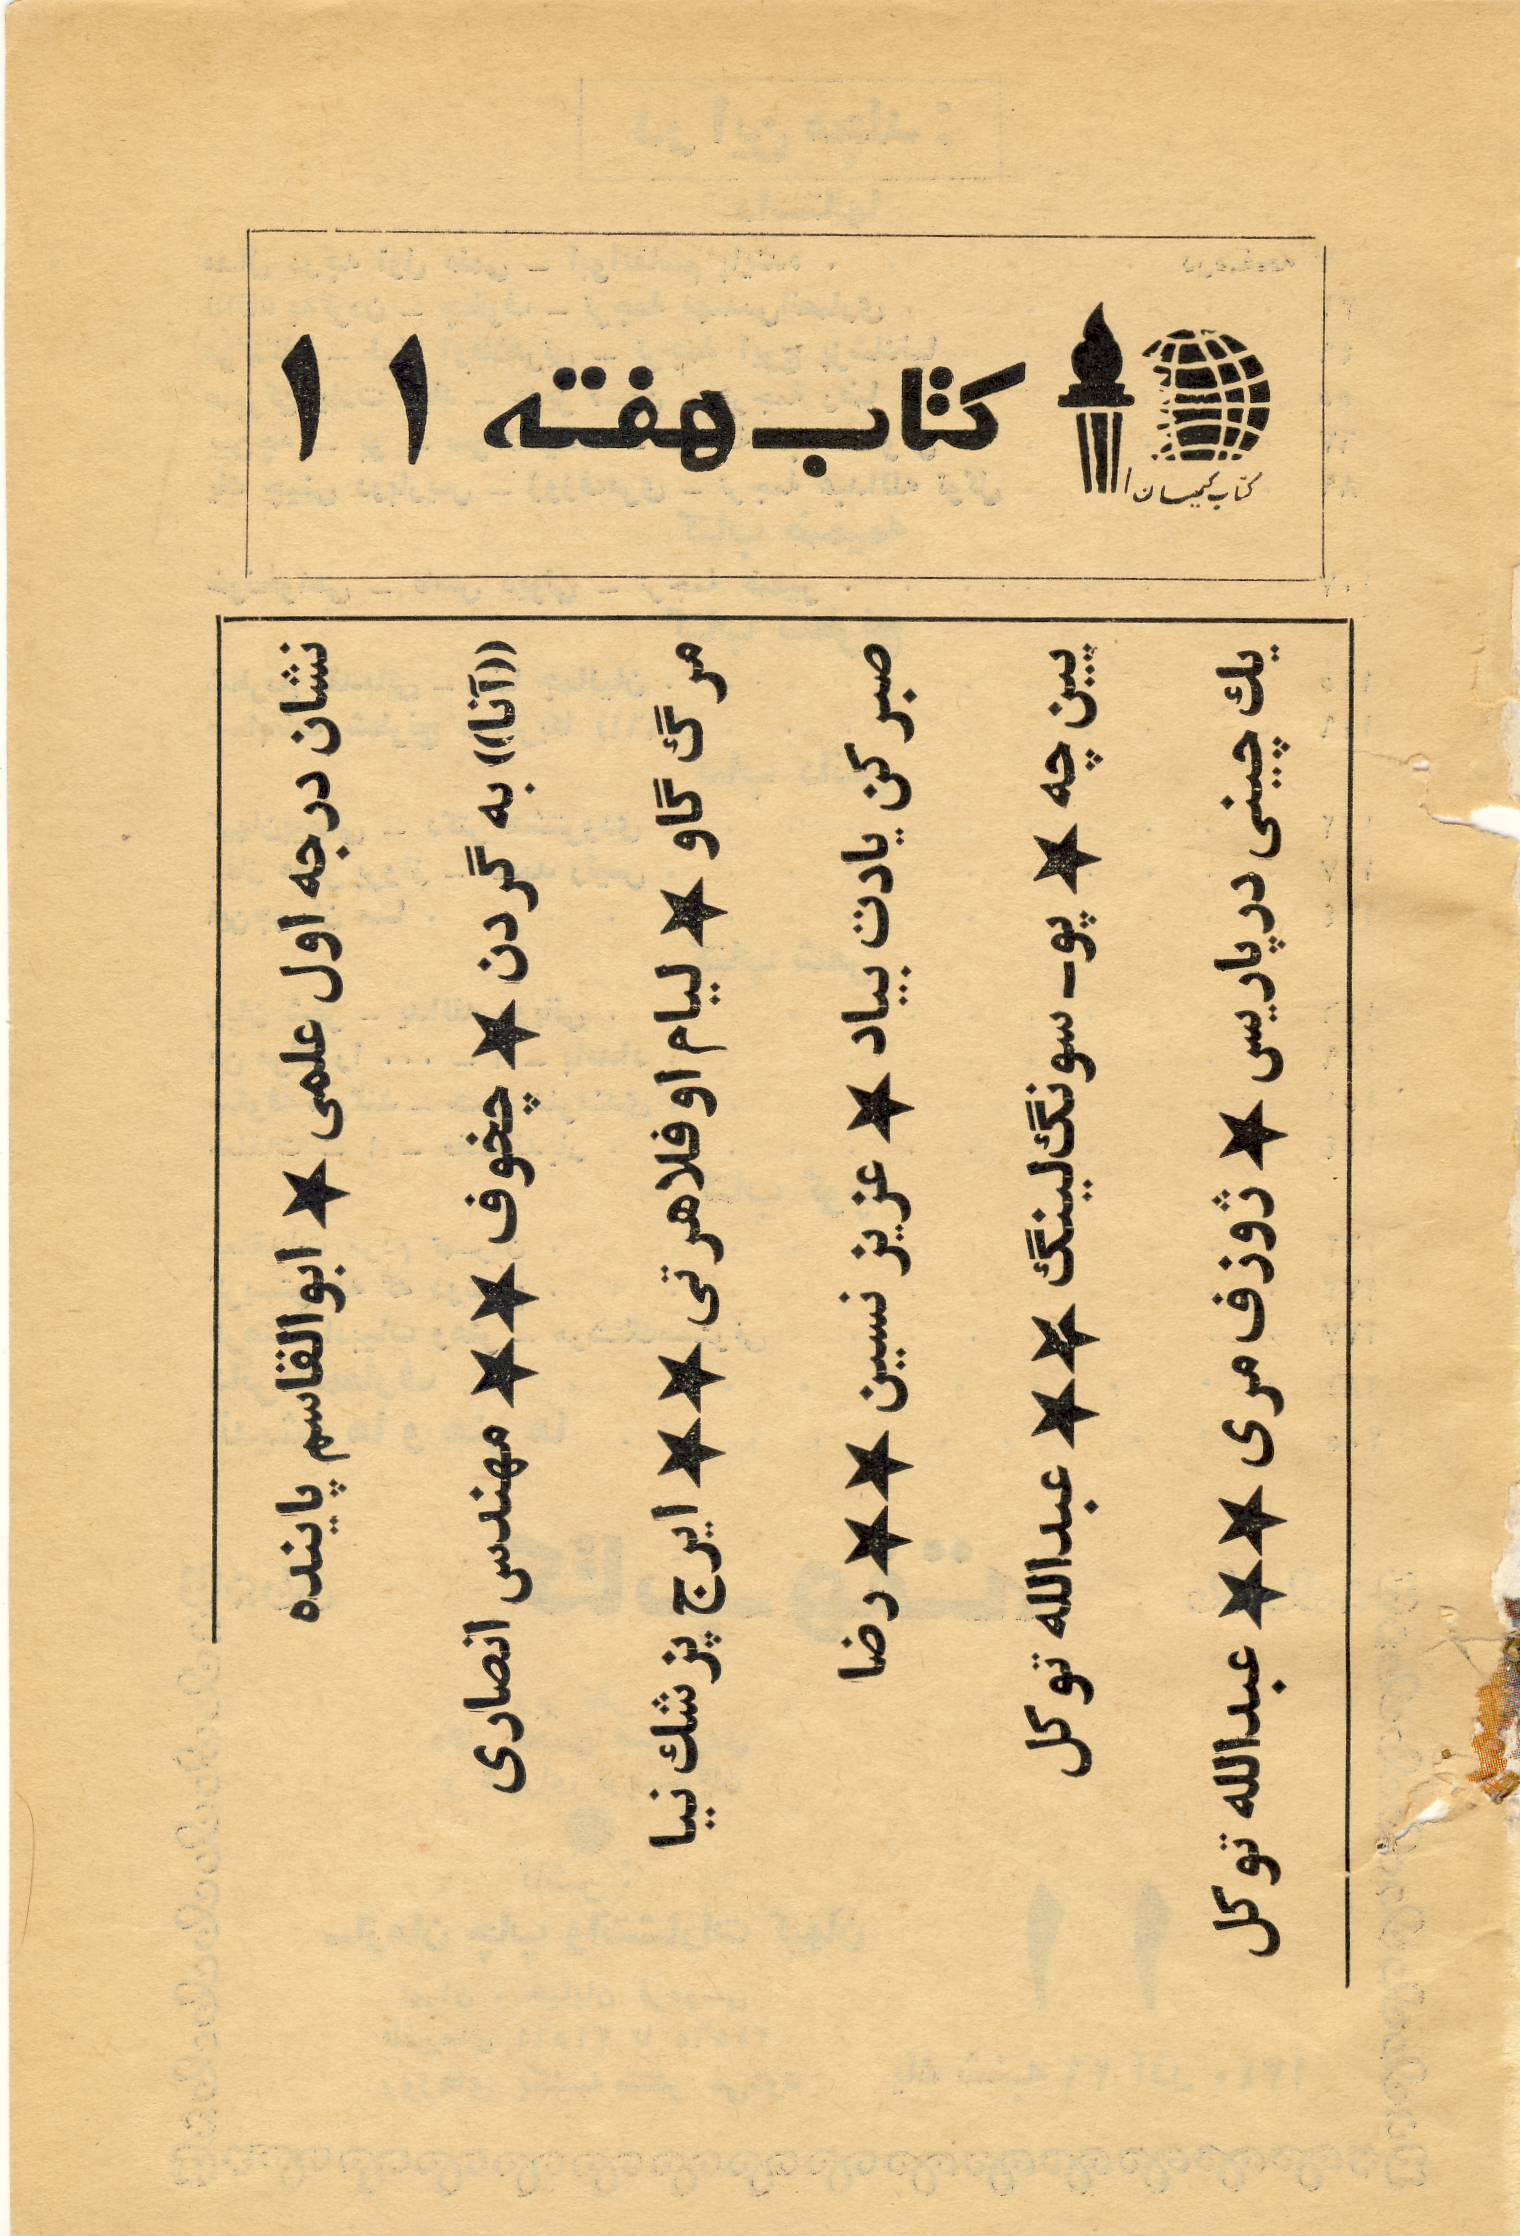 کتاب هفته ۱۱
کتاب کیهان
نشان درجه اول علمی ★ ابوالقاسم پاینده
«آنا» به گردن ★ چخوف ★★ مهندس انصاری
مرگ گاو ★ لیام اوفلاهرتی ★★ ایرج پزشك نیا
صبر کن یادت بیاد ★ عزیز نسین ★★ رضا
پین چه ★ پو ـ سونگ‌لینگ ★★ عبدالله توکل
یك چینی در پاریس ★ ژوزف مری ★★ عبدالله توکل